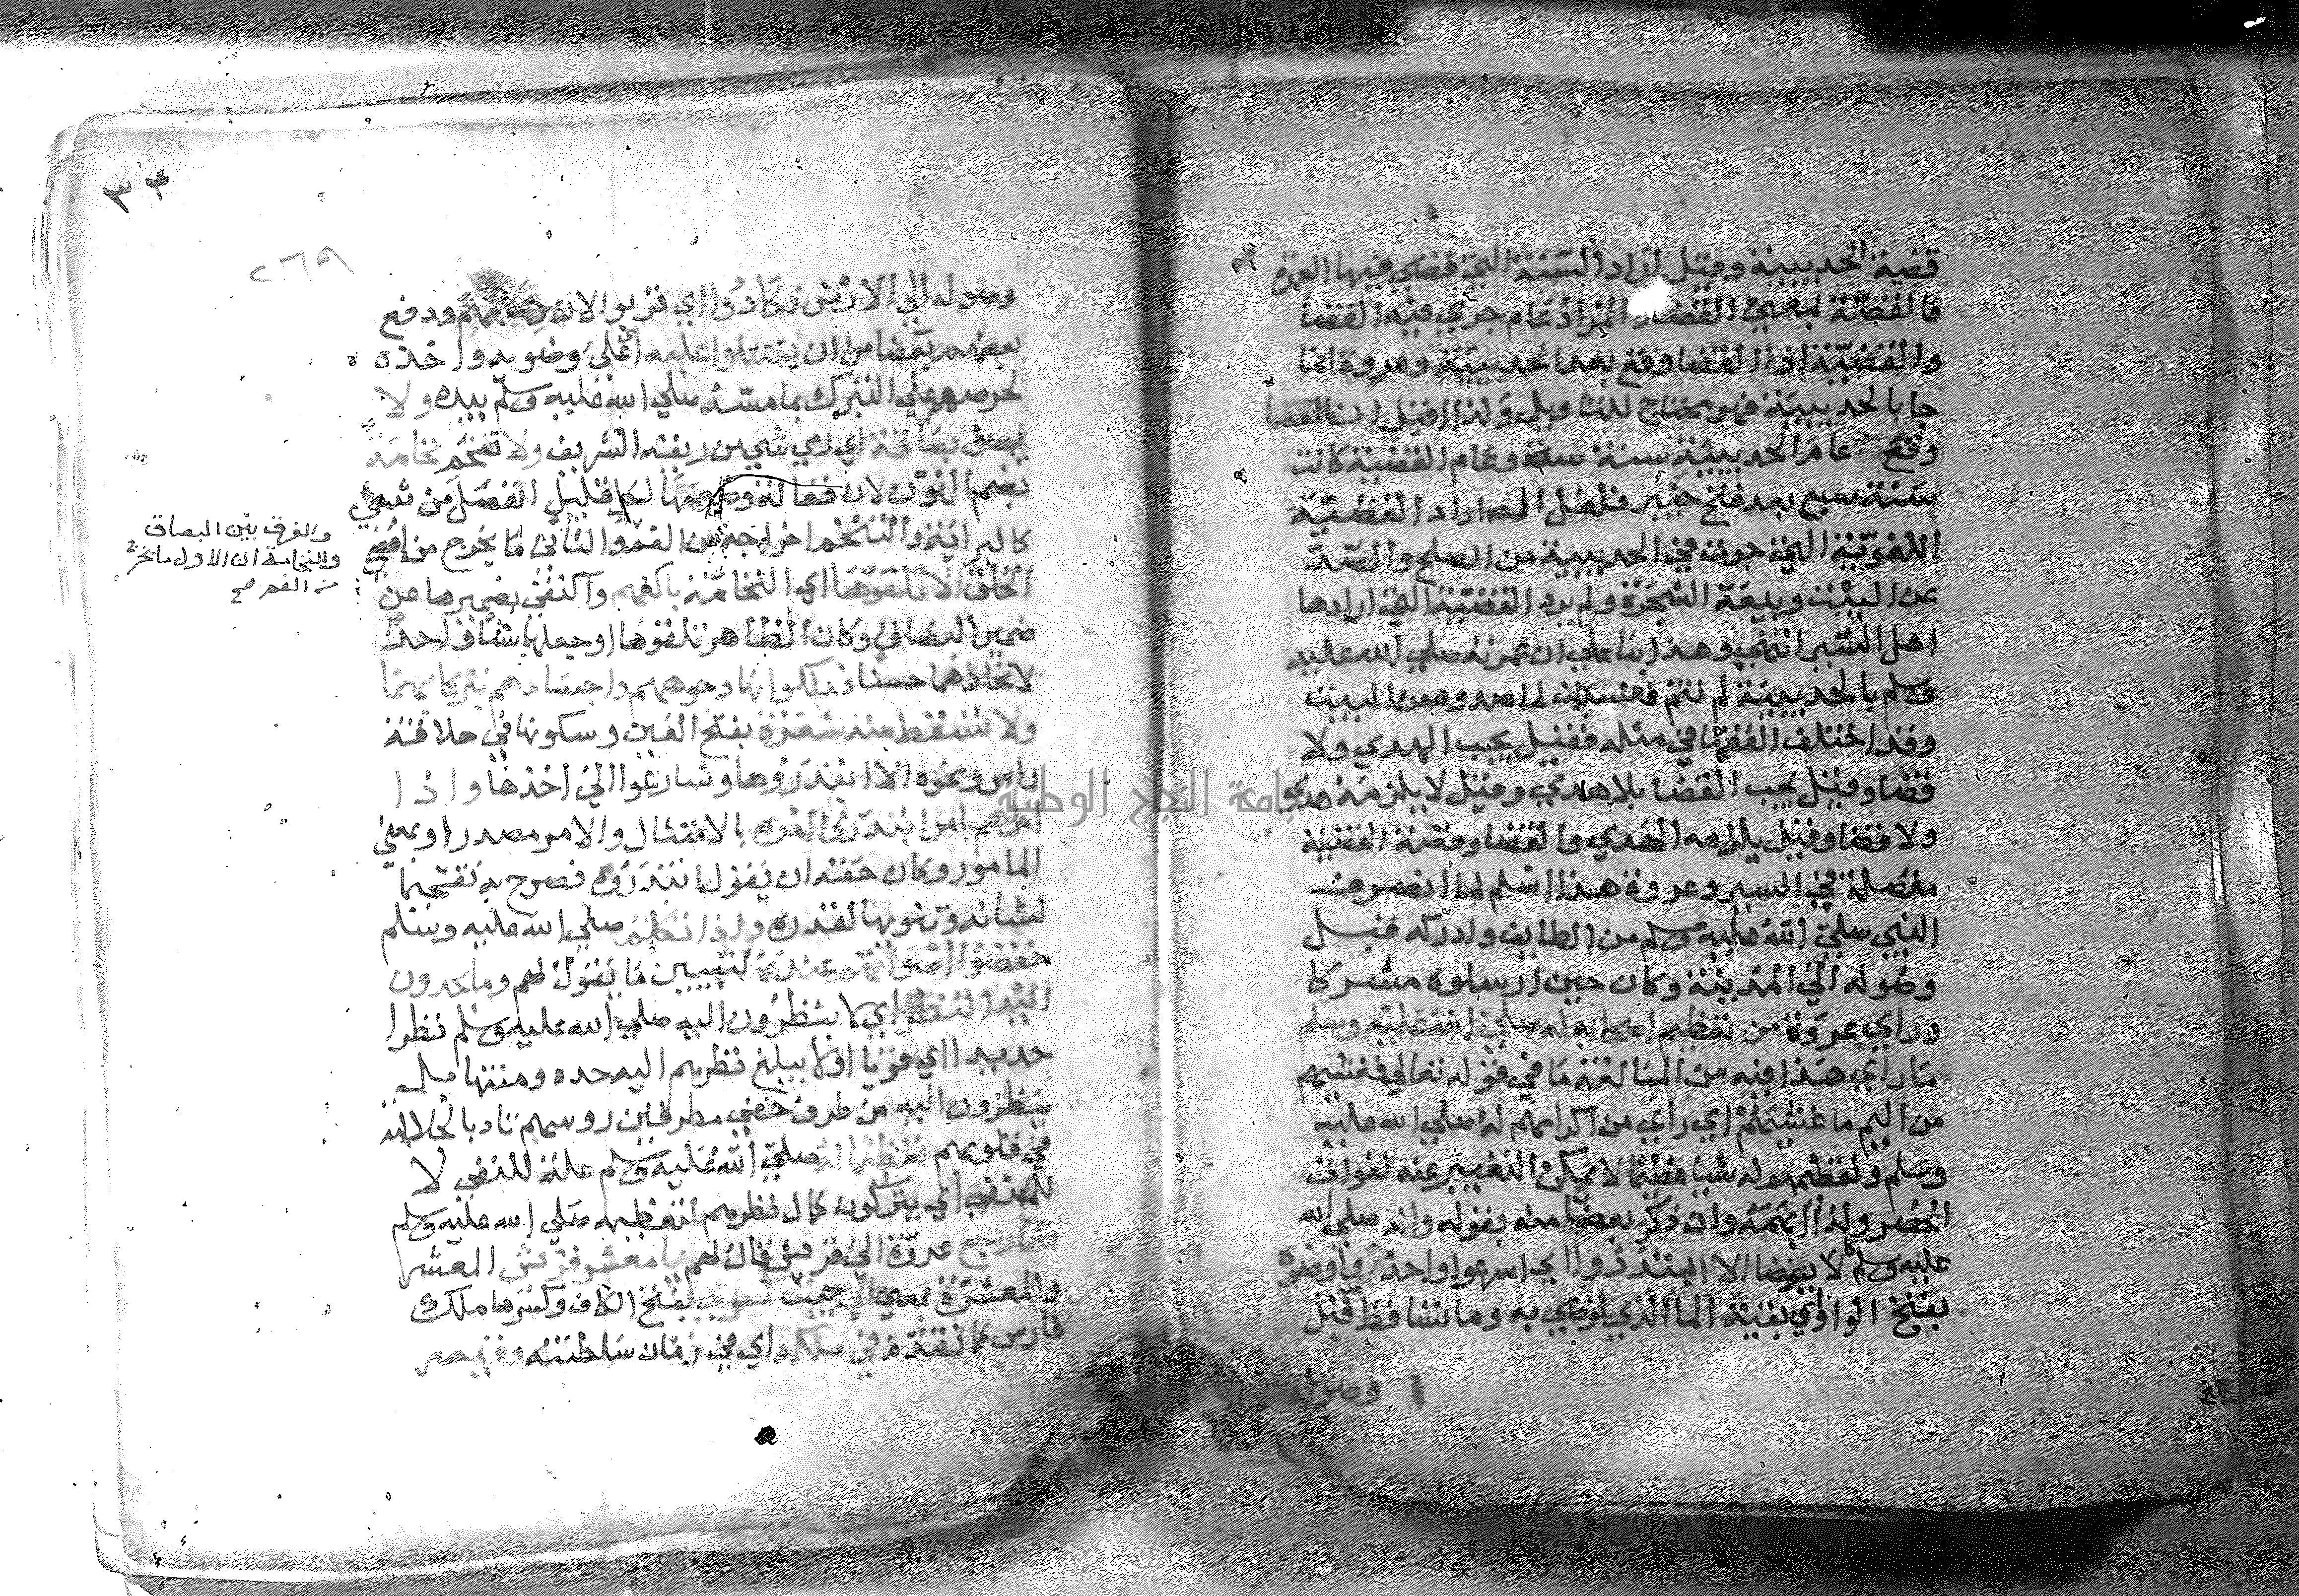 قضية الحديبية وقيل اراد السنة التي قضي فيها العمرة
فالقضية بمعني القضا والمراد عام جري فيه القضا
والقضية اذ القضا وقع بعد الحديبية وعروة انما
جا بالحديبية فهو محتاج للتاويل ولذا قيل ان القضا
وقع عام الحديبية سنة ستة وعام القضية كانت
سنة سبع بعد فتح خيبر فلعل المص اراد القضية
اللغوية التي جرت في الحديبية من الصلح والصد
عن البيت وبيعة الشجرة ولم يرد القضية التي ارادها
اهل السير انتهي وهذا بنا علي ان عمرته صلي الله عليه
وسلم بالحديبية لم تتم لما صدوه عن البيت
وقد اختلف الفقها في مثله فقيل يجب الهدي ولا
قضا وقيل يجب القضا بلا هدي وقيل لا يلزمه هدي
ولا قضا وقيل يلزمه الهدي والقضا وقصة القضية
مفصلة في السير وعروة هذا اسلم لما انصرف
النبي صلي الله عليه وسلم من الطايف وادركه قبل
وصوله الي المدينة وكان حين ارسلوه مشركا
وراي عروة من تعظيم اصحابه له صلي الله عليه وسلم
ما راي هذا فيه من المبالغة ما في قوله تعالي فغشيهم
من اليم ما غشيهم اي راي من اكرامهم له صلي الله عليه
وسلم وتعظيمهم له شيا عظيما لا يمكن التعبير عنه لفوات
الحصر ولذا ابهمه وان ذكر بعضا منه بقوله وانه صلي الله
عليه وسلم لا يتوضا الا ابتدروا اي اسرعوا واخذوا وضوه
بفتح الواو اي بقية الما الذي توضي به وما تساقط قبل
وصوله
٣٤
٢٦٩
وصوله الي الارض وكادوا اي قربوا لازدحامهم ودفع
بعضهم بعضا من ان يقتتلوا عليه اي علي وضويه واخذه
لحرصهم علي التبرك بما مسه صلي الله عليه وسلم بيده ولا
يبصق بصاقة اي رمي شي من ريقه الشريف ولا تنخم نخامة
بضم النون لان فعالة وضعها لكل قليل انفصل من شي
كالبراية والتنخم اخراجه من الفم والثاني ما يخرج من اقصي
الحلق الا تلقوها اي النخامة باكفهم واكتفي بضميرها عن
ضمير البصاق وكان الظاهر تلقوهما او جعلها شيا واحدا
لاتحادهما حسنا فدلكوا بها وجوههم واجسادهم تبركا بهما
ولا تسقط منه شعرة بفتح العين وسكونها في حلاقة
راس ونحوه الا ابتدروها وتسارعوا الي اخذها واذا
امرهم بامر ابتدروا امره بالامتثال والامر مصدر او بمعني
المامور وكان حقه ان يقول ابتدروه فصرح به تفخيما
لشانه وتنويها لقدره واذا تكلم صلي الله عليه وسلم
خفضوا اصواتهم عنده ليتبين ما يقول لهم وما يحدون
اليه النظر اي لا ينظرون اليه صلي الله عليه وسلم نظرا
حديدا اي قويا او لا يبلغ نظرهم اليه حده ومنتهاه بل
ينظرون اليه من طرف خفي مطرقين روسهم تادبا لجلالته
في قلوبهم تعظيما له صلي الله عليه وسلم علة للنفي لا
للمنفي اي يتركون كمال نظرهم لتعظيمه صلي الله عليه وسلم
فلما رجع عروة الي قريش قال لهم يا معشر قريش المعشر
والمعشرة بمعني اني جيت كسري بفتح الكاف وكسرها ملك
فارس كما تقدم في ملكه اي في زمان سلطنته وقيصر
والفرق بين البصاق
والنخامة ان الاول ما يخرج
من الفم صح
جامعة النجاح الوطنية